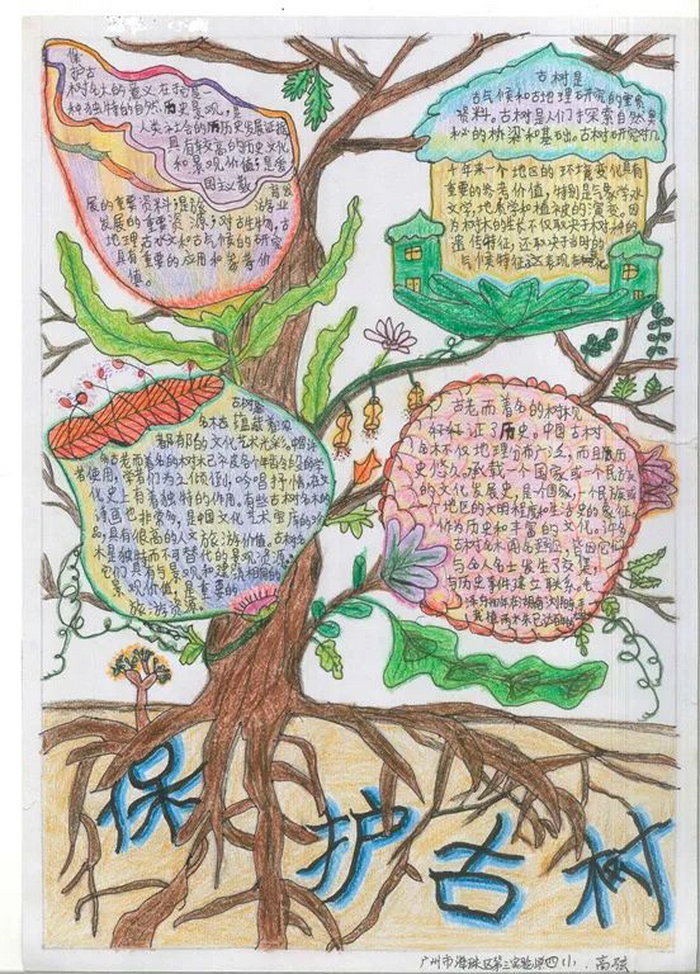 保
护古
树名木的意义在于它是
种独特的自然历史景观,是
人类社会的历史发展证据
具有较高的历史文化
和景观价值;是爱
国主义教
展的重要资料;是旅游业
发展的重要资源;对古生物,古
地理古水文和古气候的研究
具有重要的应用和参考价
值。
古树是
古气候和古地理研究的重要
资料。古树是人们于探索自然奥
秘的桥梁和基础。古树研究对几
千年来一个地区的环境变化具有
重要的参考价值,特别是气象学水
文学,地质学和植被的演变。因
为树木的生长不仅取决于树种的
遗传特征,还取决于当时的
气候特征这表现在
古树
名木古蕴藏着
都郁的文化艺术光彩。中国许
多古老而着名的树木已不仅各个年龄段的学
者使用,学者们为之倾倒,吟唱抒情,在文
化史上有着独特的作用。有些古树名木的
诗画也非常多,是中国文化艺术宝库的珍
品,具有很高的人文旅游价值。古树名
木是独特而不可替代的景观资源。
它们具有与景观和建筑相同的
景观价值,是重要的
旅游资源。
古老而着名的树林见
证了历史。中国古树
名木不仅地理分布广泛,而且历
史悠久。承载一个国家或一个民族
的文化发展史,是一个国家,一个民族或
个地区的文明程度和生活史的象征,
作为历史和丰富的文化。许多
古树名木闻名遐迩,皆因它们
与名人名士发生了交集,
与历史事件建立联系。毛
泽东
保护古树
广州市海珠区第三实验小学四(1)高弦